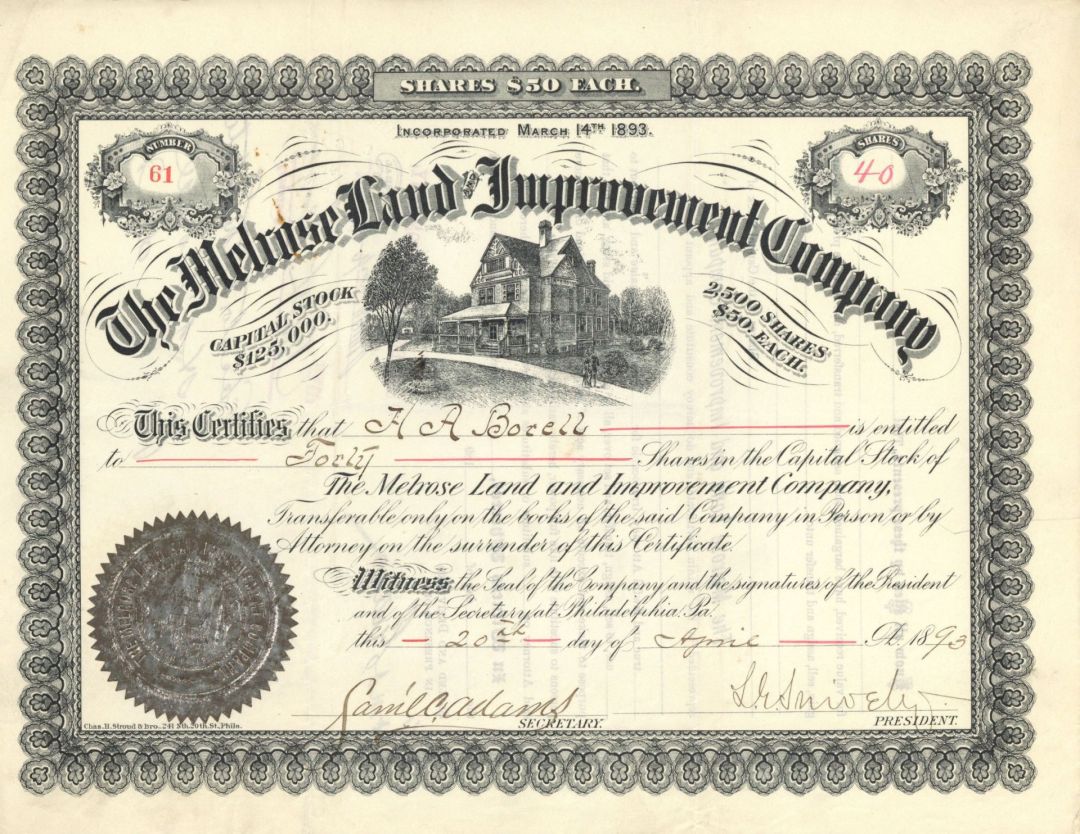 SHARES $50 EACH.
INCORPORATED MARCH 14TH 1893.
NUMBER
61
SHARES
40
The Melrose Land and Improvement Company
CAPITAL STOCK
$125,000.
2,500 SHARES
$50. EACH.
This Certifies that H A Borell is entitled
to Forty Shares in the Capital Stock of
The Melrose Land and Improvement Company,
Transferable only on the books of the said Company in Person or by
Attorney on the surrender of this Certificate.
Witness the Seal of the Company and the signatures of the President
and of the Secretary at Philadelphia, Pa.
this 20th day of April A.D. 1893
Sam'l C. Adams
SECRETARY.
PRESIDENT.
Chas. H. Stroud & Bro., 241 Nth. 20th. St., Phila.